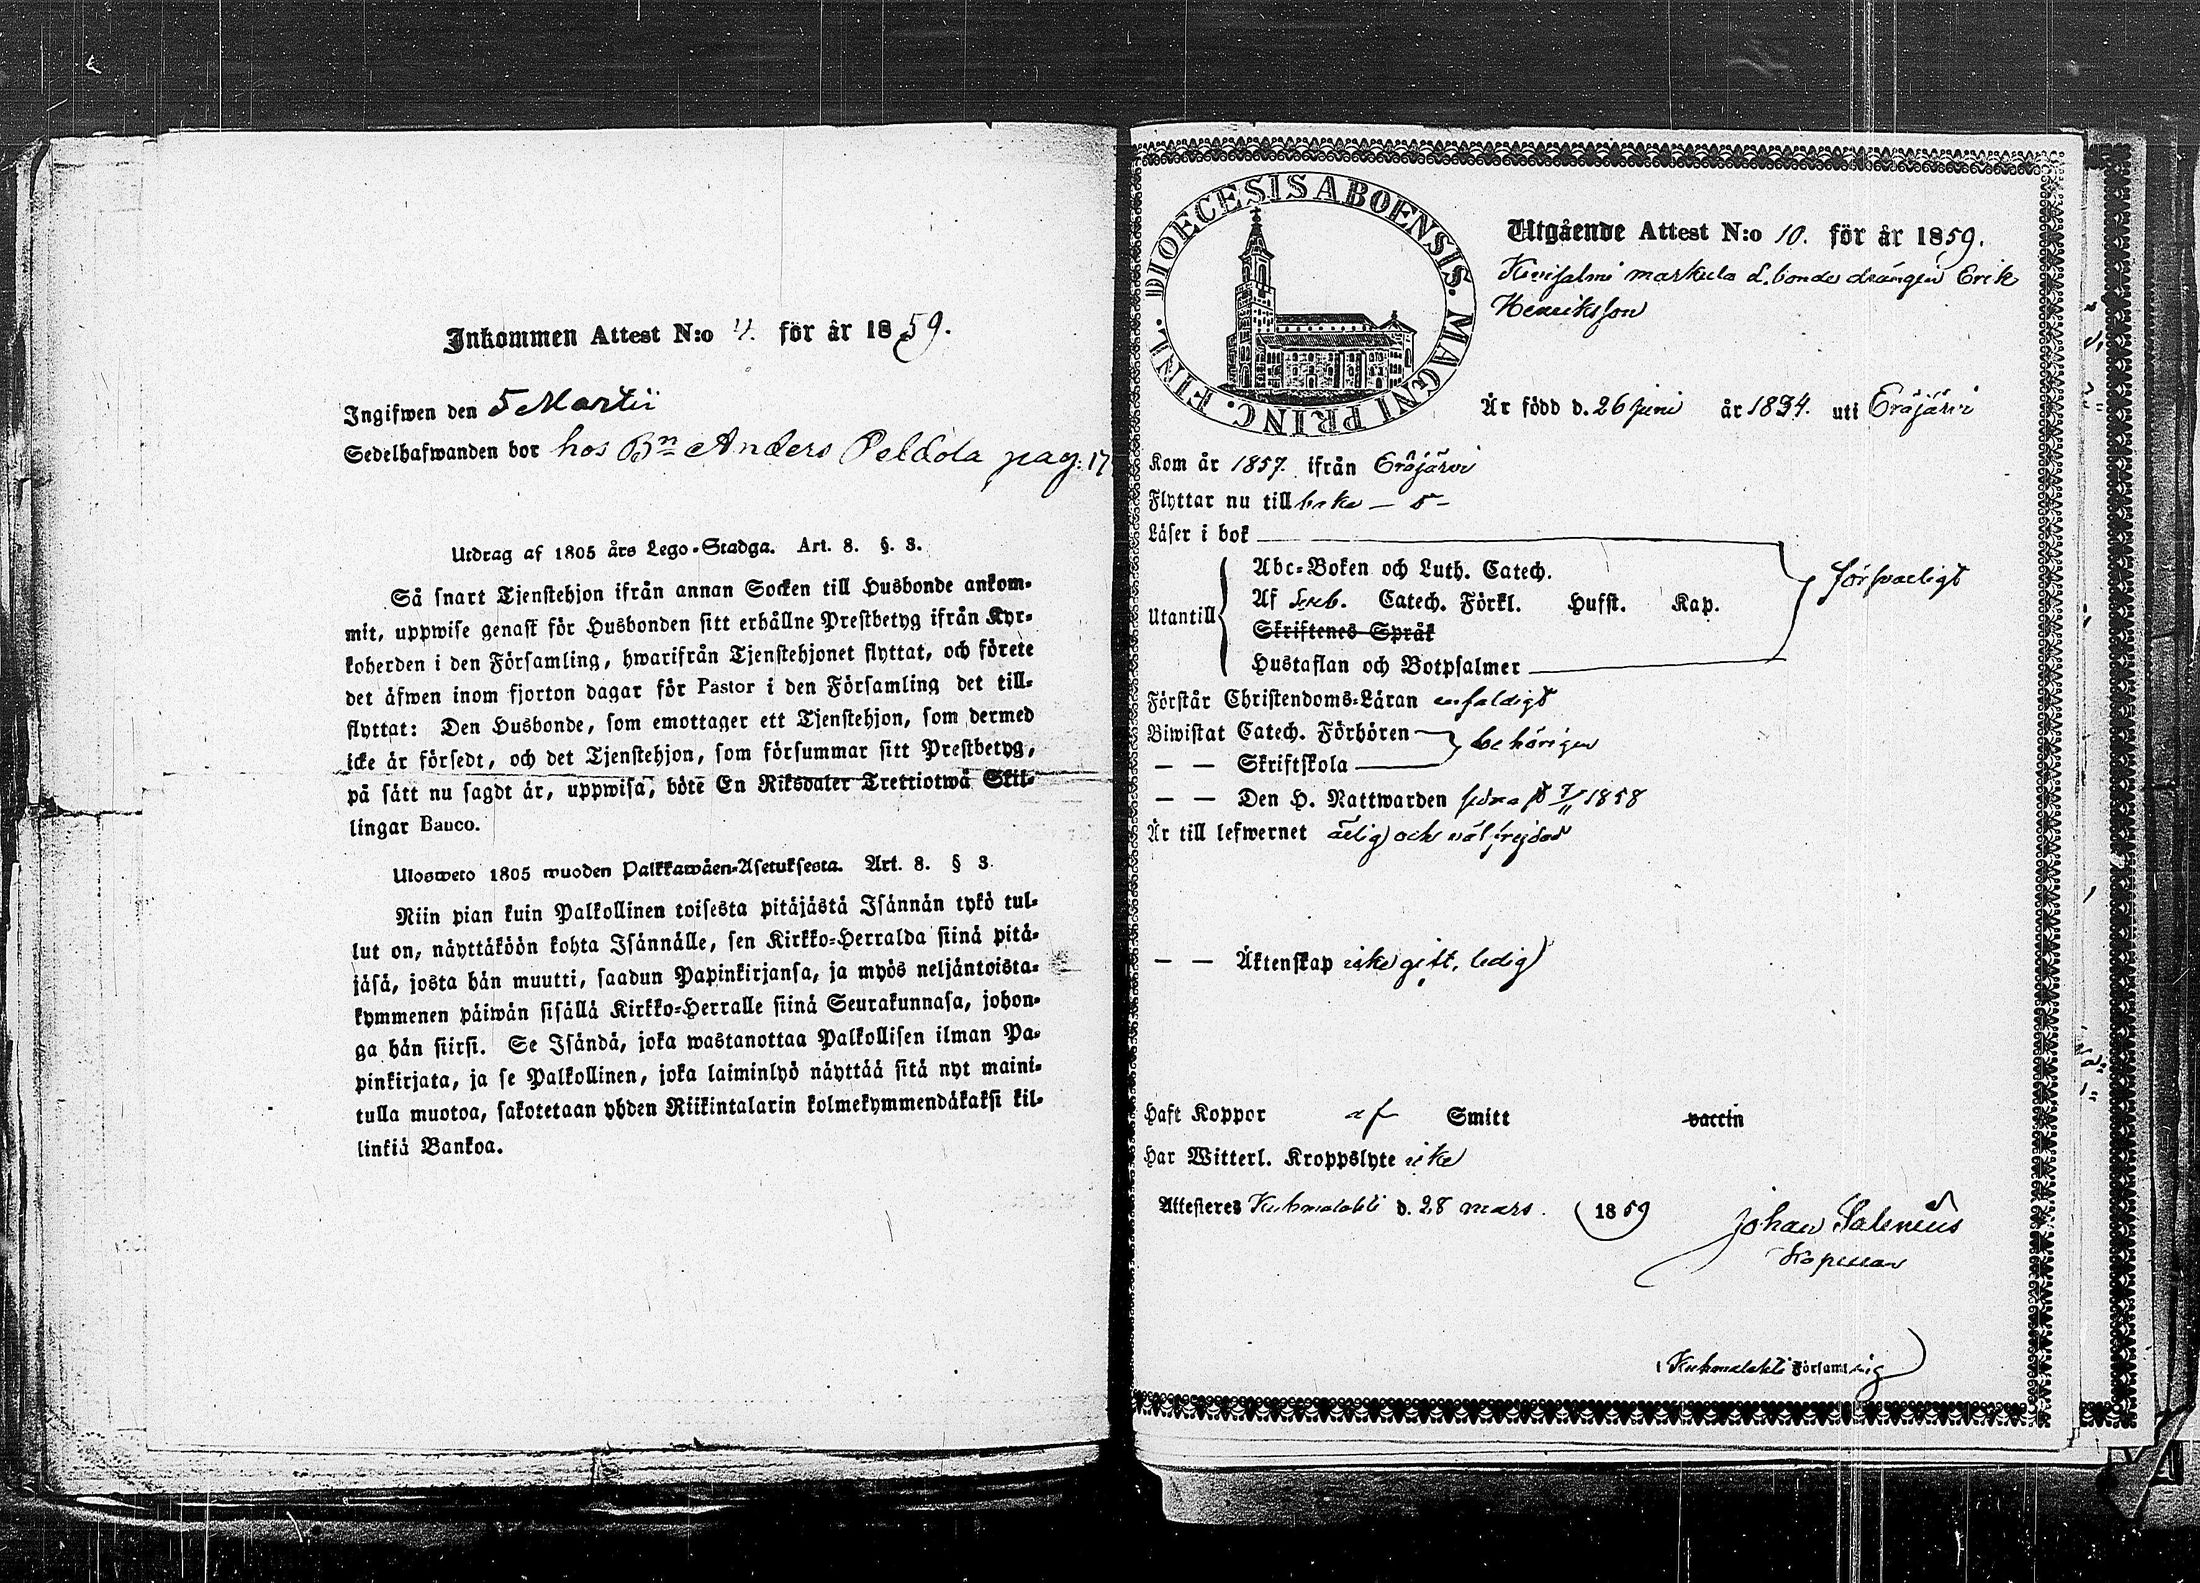 Inkommen Attest N:o 4. för år 1859.
Ingifwen den 5 Martii
Sedelhafwanden bor hos Bn Anders Peldola pag: 17
Utdrag af 1805 års Lego-Stadga. Art. 8. §. 3.
Så snart Tjenstehjon ifrån annan Socken till Husbonde ankom-
mit, uppwise genast för Husbonden sitt erhållne Prestbetyg ifrån Kyr-
koherden i den Församling, hwarifrån Tjenstehjonet flyttat, och förete
det äfwen inom fjorton dagar för Pastor i den Församling det till-
flyttat: Den Husbonde, som emottager ett Tjenstehjon, som dermed
icke är försedt, och det Tjenstehjon, som försummar sitt Prestbetyg,
på sätt nu sagdt är, uppwisa, böte En Riksdaler Trettiotwå Skil-
lingar Banco.
Ulosweto 1805 wuoden Palkkawäen-Asetuksesta. Art. 8. § 3.
Niin pian kuin Palkollinen toisesta pitäjästä Isännän tykö tul-
lut on, näyttäköön kohta Isännälle, sen Kirkko-Herralda siinä pitä-
jäsä, josta hän muutti, saadun Papinkirjansa, ja myös neljäntoista-
kymmenen päiwän sisällä Kirkko-Herralle siinä Seurakunnasa, johon-
ga hän siirsi. Se Isändä, joka wastanottaa Palkollisen ilman Pa-
pinkirjata, ja se Palkollinen, joka laiminlyö näyttää sitä nyt maini-
tulla muotoa, sakotetaan yhden Riikintalarin kolmekymmendäkaksi kil-
linkiä Bankoa.
DIOECESIS ABOENSIS. MAGNI PRINC. FINL.
Utgående Attest N:o 10. för år 1859.
markula bonde drängen Erik
Henriksson
Är född d. 26 juni år 1834. uti Eräjärvi
Kom år 1857. ifrån Eräjärvi
Flyttar nu till baka
Läser i bok
Abc-Boken och Luth. Catech.
försvarligt
Utantill
Af Catech. Förkl. Husst. Kap.
Skriftenes Språk
Hustaflan och Botpsalmer
Förstår Christendoms-Läran enfaldigt
Biwistat Catech. Förhören
behörigen
— — Skriftskola
— — Den H. Nattwarden 7/11 1858
Är till lefwernet ärlig och välfrejdad
— — Äktenskap icke gift, ledig
Haft Koppor af Smitt vaccin
Har Witterl. Kroppslyte icke
Attesteres Kuhmalahti d. 28 mars. 1859
Johan Salenius
Kapellan
i Kuhmalahti Församling